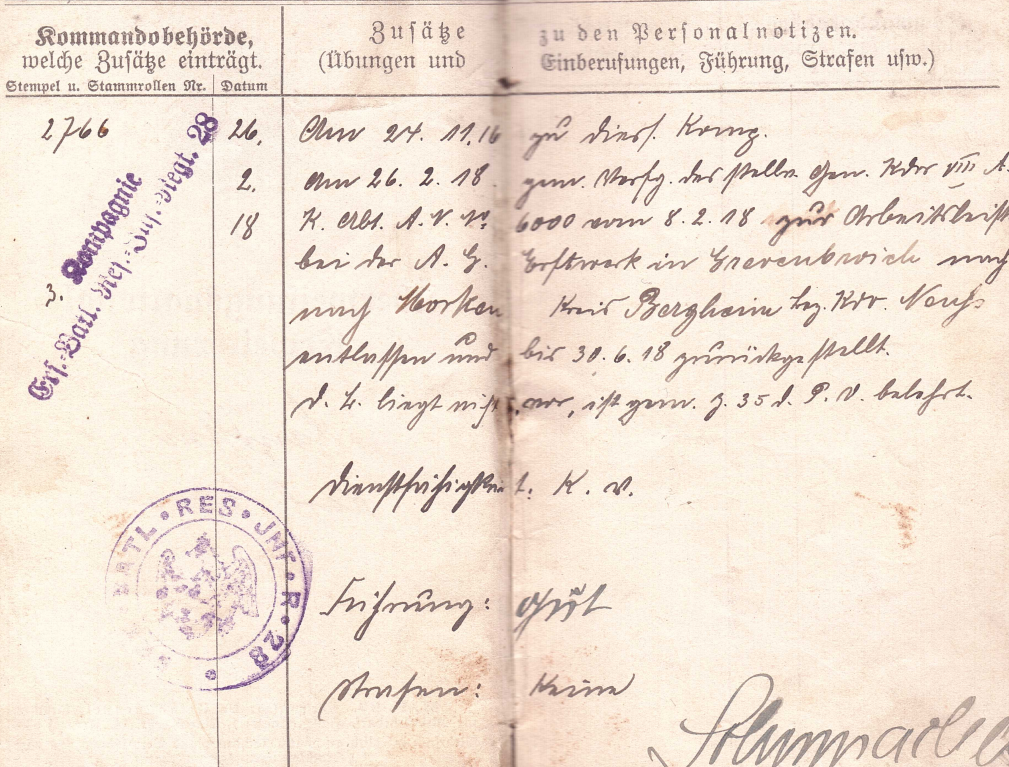 Kommandobehörde,
welche Zusätze einträgt.
Stempel u. Stammrollen Nr.
Datum
Zusätze zu den Personalnotizen.
(Übungen und Einberufungen, Führung, Strafen usw.)
2766
26.
2.
18
3. Kompagnie
Ers.-Batl. Res.-Inf.-Regt. 28
Am 24. 11. 16 zu dies. Komp.
Am 26. 2. 18 gem. Verfg. des stellv. Gen. Kdos VIII A.
K. Abt. A. V. Nr. 6000 vom 8. 2. 18 zur Arbeitsleist
bei der A. G. Erftwerk in Grevenbroich nach
nach Morken Kreis Bergheim bez. Kdo. Neuß
entlassen und bis 30. 6. 18 zurückgestellt.
D. B. liegt nicht vor, ist gem. Z. 35 d. P. V. belehrt.
Dienstfähigkeit: K. v.
BATL • RES • INF • R • 28
Führung: Gut
Strafen: Keine